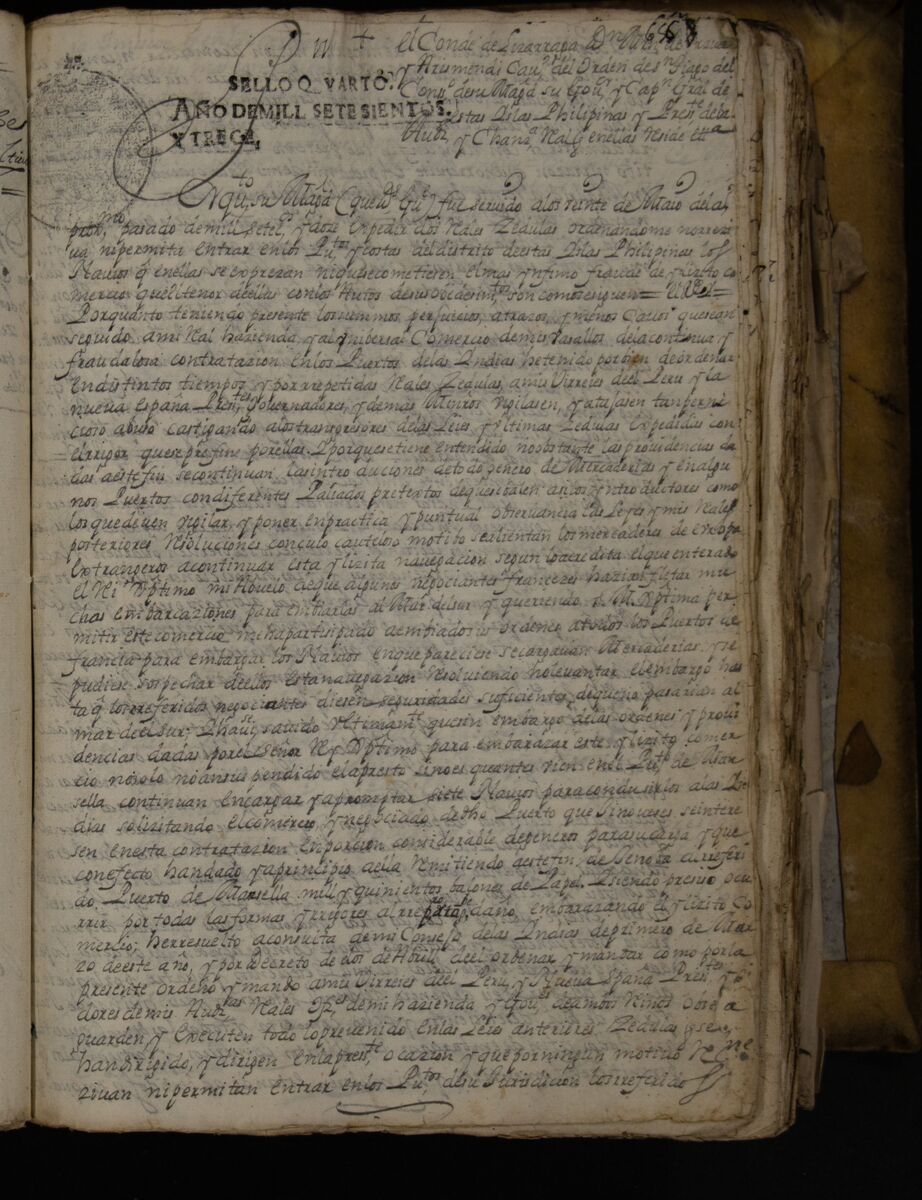 El Conde de Lizarraga Dn
y Arismendi Cauo. del Orden de Sn. tiago del
SELLO QVARTO.
Conso. de su Magd. su Gou. y Capn. Gral de
AÑO DE MILL SETESIENTOS.
estas Yslas Philipinas y Preste. de la
Y TRECE.
Auda. y Chanza. Real q. en ellas reside etta.
Por qto. su Magd. (que Ds. gue.) fue seruido a los veinte de Maio del año
pmo. pasado de mill setes. y doze expedir dos Reales Zedulas ordenandome no reziui
ua ni permita entrar en los Ptos. y costas del distrito de estas Yslas Philipinas los
Nauios q. en ellas se exprezan ni que se cometieren el mas ynfimo fraude de ylizito co
mercio que el tenor de ellas con los Autos de su obedesimto. son como se siguen = El Rey =
Por quanto teniendo presente los summos perjuicios, atrazos, y menos Cauos que se an
seguido a mi Ral hazienda, y al unibersal Comercio de mis vasallos de la continua y
fraudalosa contratazion en los Puertos de las Yndias he tenido por bien de ordenar
en distintos tiempos y por rrepetidas Reales Zedulas, a mis Virreies del Peru y la
nueua España Prestes. Gouernadores, y demas Minros vigilasen, y atajasen tan perni
cioso abuso castigando a los transgresores de las Leies, y Vltimas Zedulas expedidas con
el rrigor que se prefine por ellas. Y porque se tiene entendido no obstante las prouidencias da
das a este fin se continuan las introduciones de todo genero de Mercaderias y en algu
nos Puertos con diferentes Paliados pretextos de que se balen asi los yntroductores como
los que deuen vigilar, y poner en practica y puntual obseruancia las Leyes y mis Reales
posteriores Resoluciones con cuio cauteloso motibo se alientan los mercaderes de Europa
extrangeros a continuar esta ylizita nauegacion segun lo acredita el que enterado
el Rei Xptmo mi Abuelo de que algunos negociantes franzeses hazian fletar mu
chas embarcaziones para embiarlas al Mar del sur y queriendo S. M. Xptma per
mitir este comercio me ha partisipado a embiado sus ordenes a todos los Puertos de
francia para embargar los Nauios en que pareciese se cargauan Mercaderias, y se
pudiese sospechar de ellos esta nauegazion Resoluiendo no leuantar el embargo has
ta q. los rreferidos negociantes diesen seguridades suficientes de que no pasarian al
mar del sur; Y hauise. sauido vltimamte. que sin embargo de las ordenes y proui
dencias dadas por el Señor Rey Xptmo para embarazar este ylizito comer
cio no solo no an suspendido el apresto sino es que antes vien en el Puto. de Mar
sella continuan en cargar y apromptar siete Nauios para condusirlos a las Yn
dias solizitando el comercio y negociado de dho Puerto que Ginoueses se intere
sen en esta contratazion en porcion considerable de generos para su carga y que
con efecto han dado ya principio a ella Remitiendo a este fin de Genoua al rreferi
do Puerto de Marsella mill y quinientos balones de Papel. Y siendo presiso ocu
rrir por todas las formas y rrigores al rreparo de este daño embarazando el ylizito Co
mercio; he rresuelto a consulta de mi Consejo de las Yndias de primero de Mar
zo de este año, y por Decreto de dos de Abril del ordenar y mandar como por la
presente ordeno y mando a mis Virreies del Peru, y Nueua España Prestes. y oi
dores de mis Audas. Reales Ofes. de mi hazienda y Goues. de ambos Reinos
guarden, y executen todo lo preuenido en las Leies anteriores Zedulas q. se
han dirigido, y dirigen en la preste. ocazion y que por ningun motiuo Re
ziuan ni permitan entrar en los Putos. de su Jurisdicion los rreferidos